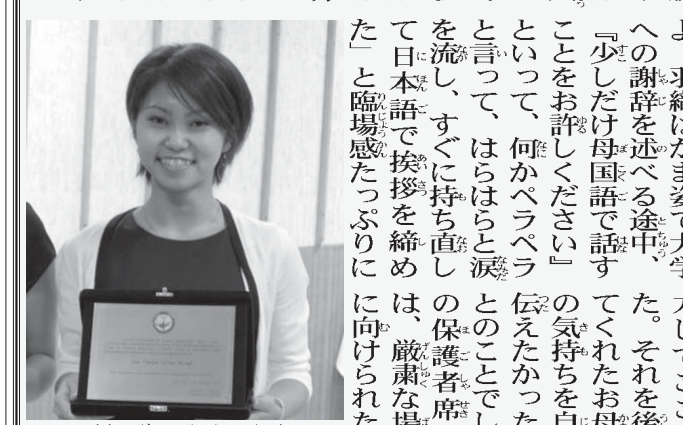 羽織はかま姿で大学
への謝辞を述べる途中、
『少しだけ母国語で話す
ことをお許しください』
といって、何かペラペラ
と言って、はらはらと涙
を流し、すぐに持ち直し
て日本語で挨拶を締め
た」と臨場感たっぷりに
してここ
た。それを後
てくれたお母
の気持ちを自
伝えたかった
とのことでし
の保護者席
は、厳粛な場
に向けられた